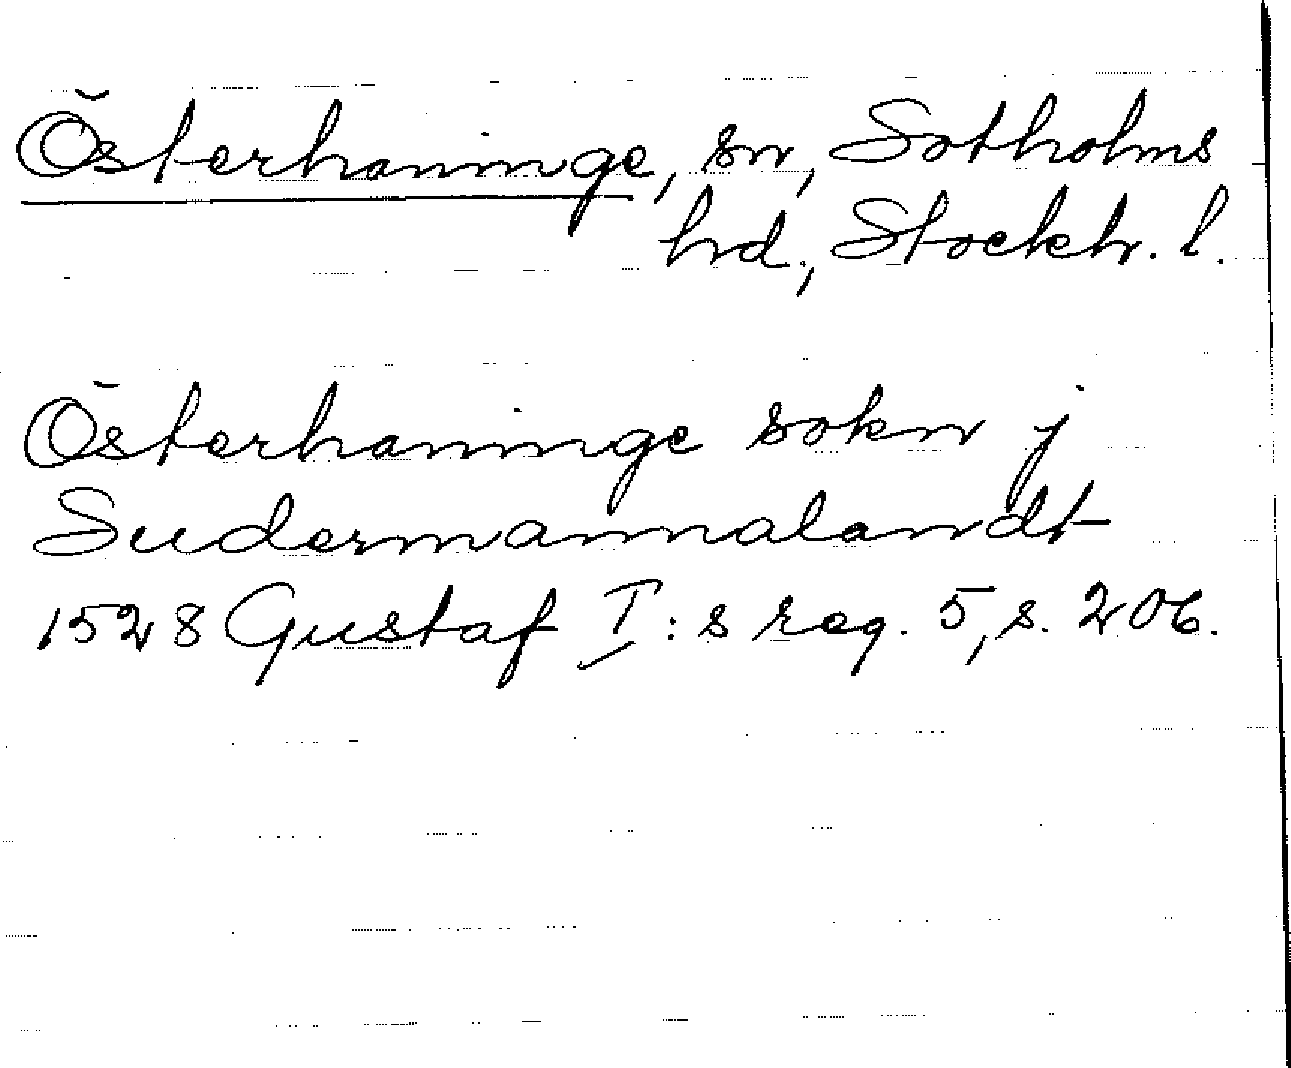 Österhaninge, sn, Sotholms
hd., Stockh. l.
Österhaninge sokn j
Sudermannalandt
1528 Gustaf I:s reg. 5, s. 206.